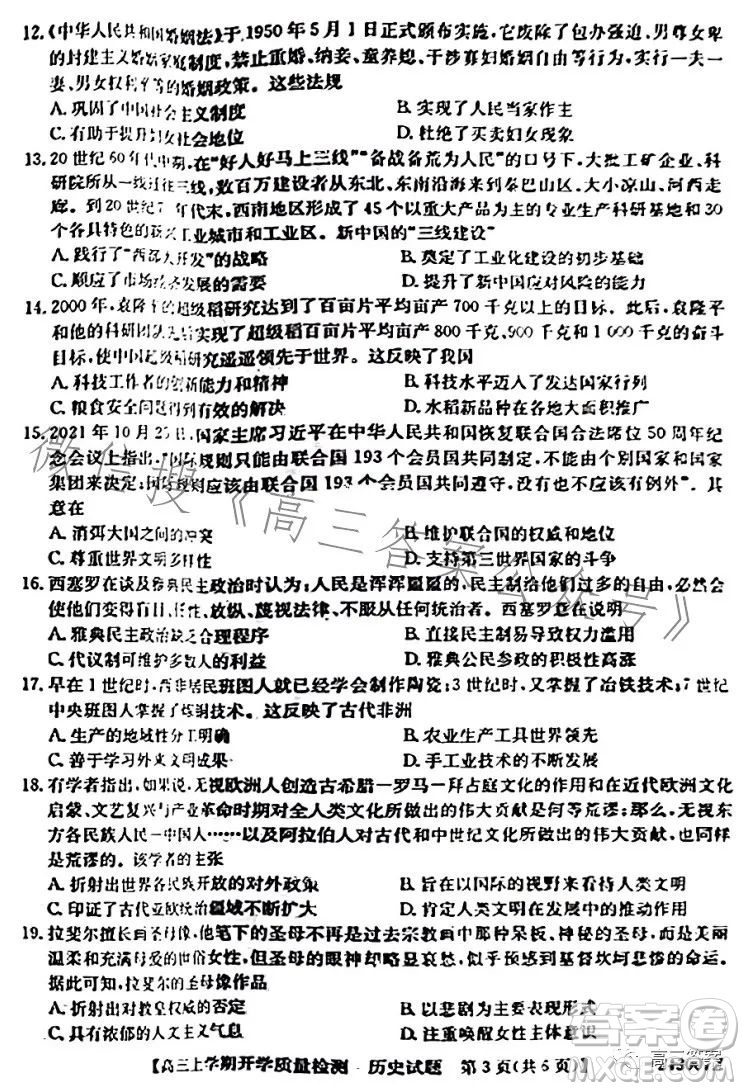 12.《中华人民共和国婚姻法》于1950年5月1日正式颁布实施,它废除了包办强迫、男尊女卑
的封建主义婚姻家庭制度,禁止重婚、纳妾、童养媳、干涉寡妇婚姻自由等行为,实行一夫一
妻、男女权利平等的婚姻政策。这些法规
A. 巩固了中国社会主义制度 B. 实现了人民当家作主
C. 有助于提升妇女社会地位 D. 杜绝了买卖妇女现象
13. 20世纪60年代中期,在“好人好马上三线”“备战备荒为人民”的口号下,大批工矿企业、科
研院所从一线迁往三线,数百万建设者从东北、东南沿海来到秦巴山区、大小凉山、河西走
廊。到20世纪7 年代末,西南地区形成了45个以重大产品为主的专业生产科研基地和30
个各具特色的新兴工业城市和工业区。新中国的“三线建设”
A. 践行了“西部大开发”的战略 B. 奠定了工业化建设的初步基础
C. 顺应了市场经济发展的需要 D. 提升了新中国应对风险的能力
14. 2000年,袁隆平的超级稻研究达到了百亩片平均亩产700千克以上的目标。此后,袁隆平
和他的科研团队先后实现了超级稻百亩片平均亩产800千克、900千克和1 000千克的奋斗
目标,使中国超级稻研究遥遥领先于世界。这反映了我国
A. 科技工作者的创新能力和精神 B. 科技水平迈入了发达国家行列
C. 粮食安全问题得到有效的解决 D. 水稻新品种在各地大面积推广
15. 2021年10月25日,国家主席习近平在中华人民共和国恢复联合国合法席位50周年纪
念会议上指出,“国际规则只能由联合国193个会员国共同制定,不能由个别国家和国家
集团来决定;国际规则应该由联合国193个会员国共同遵守,没有也不应该有例外”。其
意在
A. 消弭大国之间的冲突 B. 维护联合国的权威和地位
C. 尊重世界文明多样性 D. 支持第三世界国家的斗争
16. 西塞罗在谈及雅典民主政治时认为:人民是浑浑噩噩的,民主制给他们过多的自由,必然使
他们变得任性、放纵、蔑视法律、不服从任何统治者。西塞罗意在说明
A. 雅典民主政治缺少合理程序 B. 直接民主制易导致权力滥用
C. 代议制可实现多数人的利益 D. 雅典公民参政的积极性高涨
17. 早在1世纪时,西非居民班图人就已经学会制作陶瓷;3世纪时,又掌握了冶铁技术;7世纪
中央班图人掌握了炼铜技术。这反映了古代非洲
A. 生产的地域性分工明显 B. 农业生产工具世界领先
C. 善于学习外来文明成果 D. 手工业技术的不断发展
18. 有学者指出,如果说,无视欧洲人创造古希腊—罗马—拜占庭文化的作用和在近代欧洲文化
启蒙、文艺复兴与产业革命时期对全人类文化所做出的伟大贡献是何等荒谬;那么,无视东
方各民族人民—中国人……以及阿拉伯人对古代和中世纪文化所做出的伟大贡献,也同样
是荒谬的。该学者的主张
A. 折射出世界各民族开放的对外政策 B. 旨在以国际的视野来看待人类文明
C. 印证了古代亚欧统治疆域不断扩大 D. 肯定人类文明在发展中的推动作用
19. 拉斐尔擅长画圣母像,他笔下的圣母不再是过去宗教画中那种呆板、神秘的圣母,而是美丽
温柔和充满母爱的世俗女性,但圣母的眼神却略显哀愁,似乎预示到基督坎坷悲惨的命运。
据此可知,拉斐尔的圣母像作品
A. 折射出对教皇权威的否定 B. 仅是悲剧的表现形式
C. 具有浓郁的人文主义气息 D. 注重唤醒女性主体意识
【高三上学期开学质量检测·历史试题 第3页(共6页)】
微信搜《高三答案公众号》
答案圈
高三答案